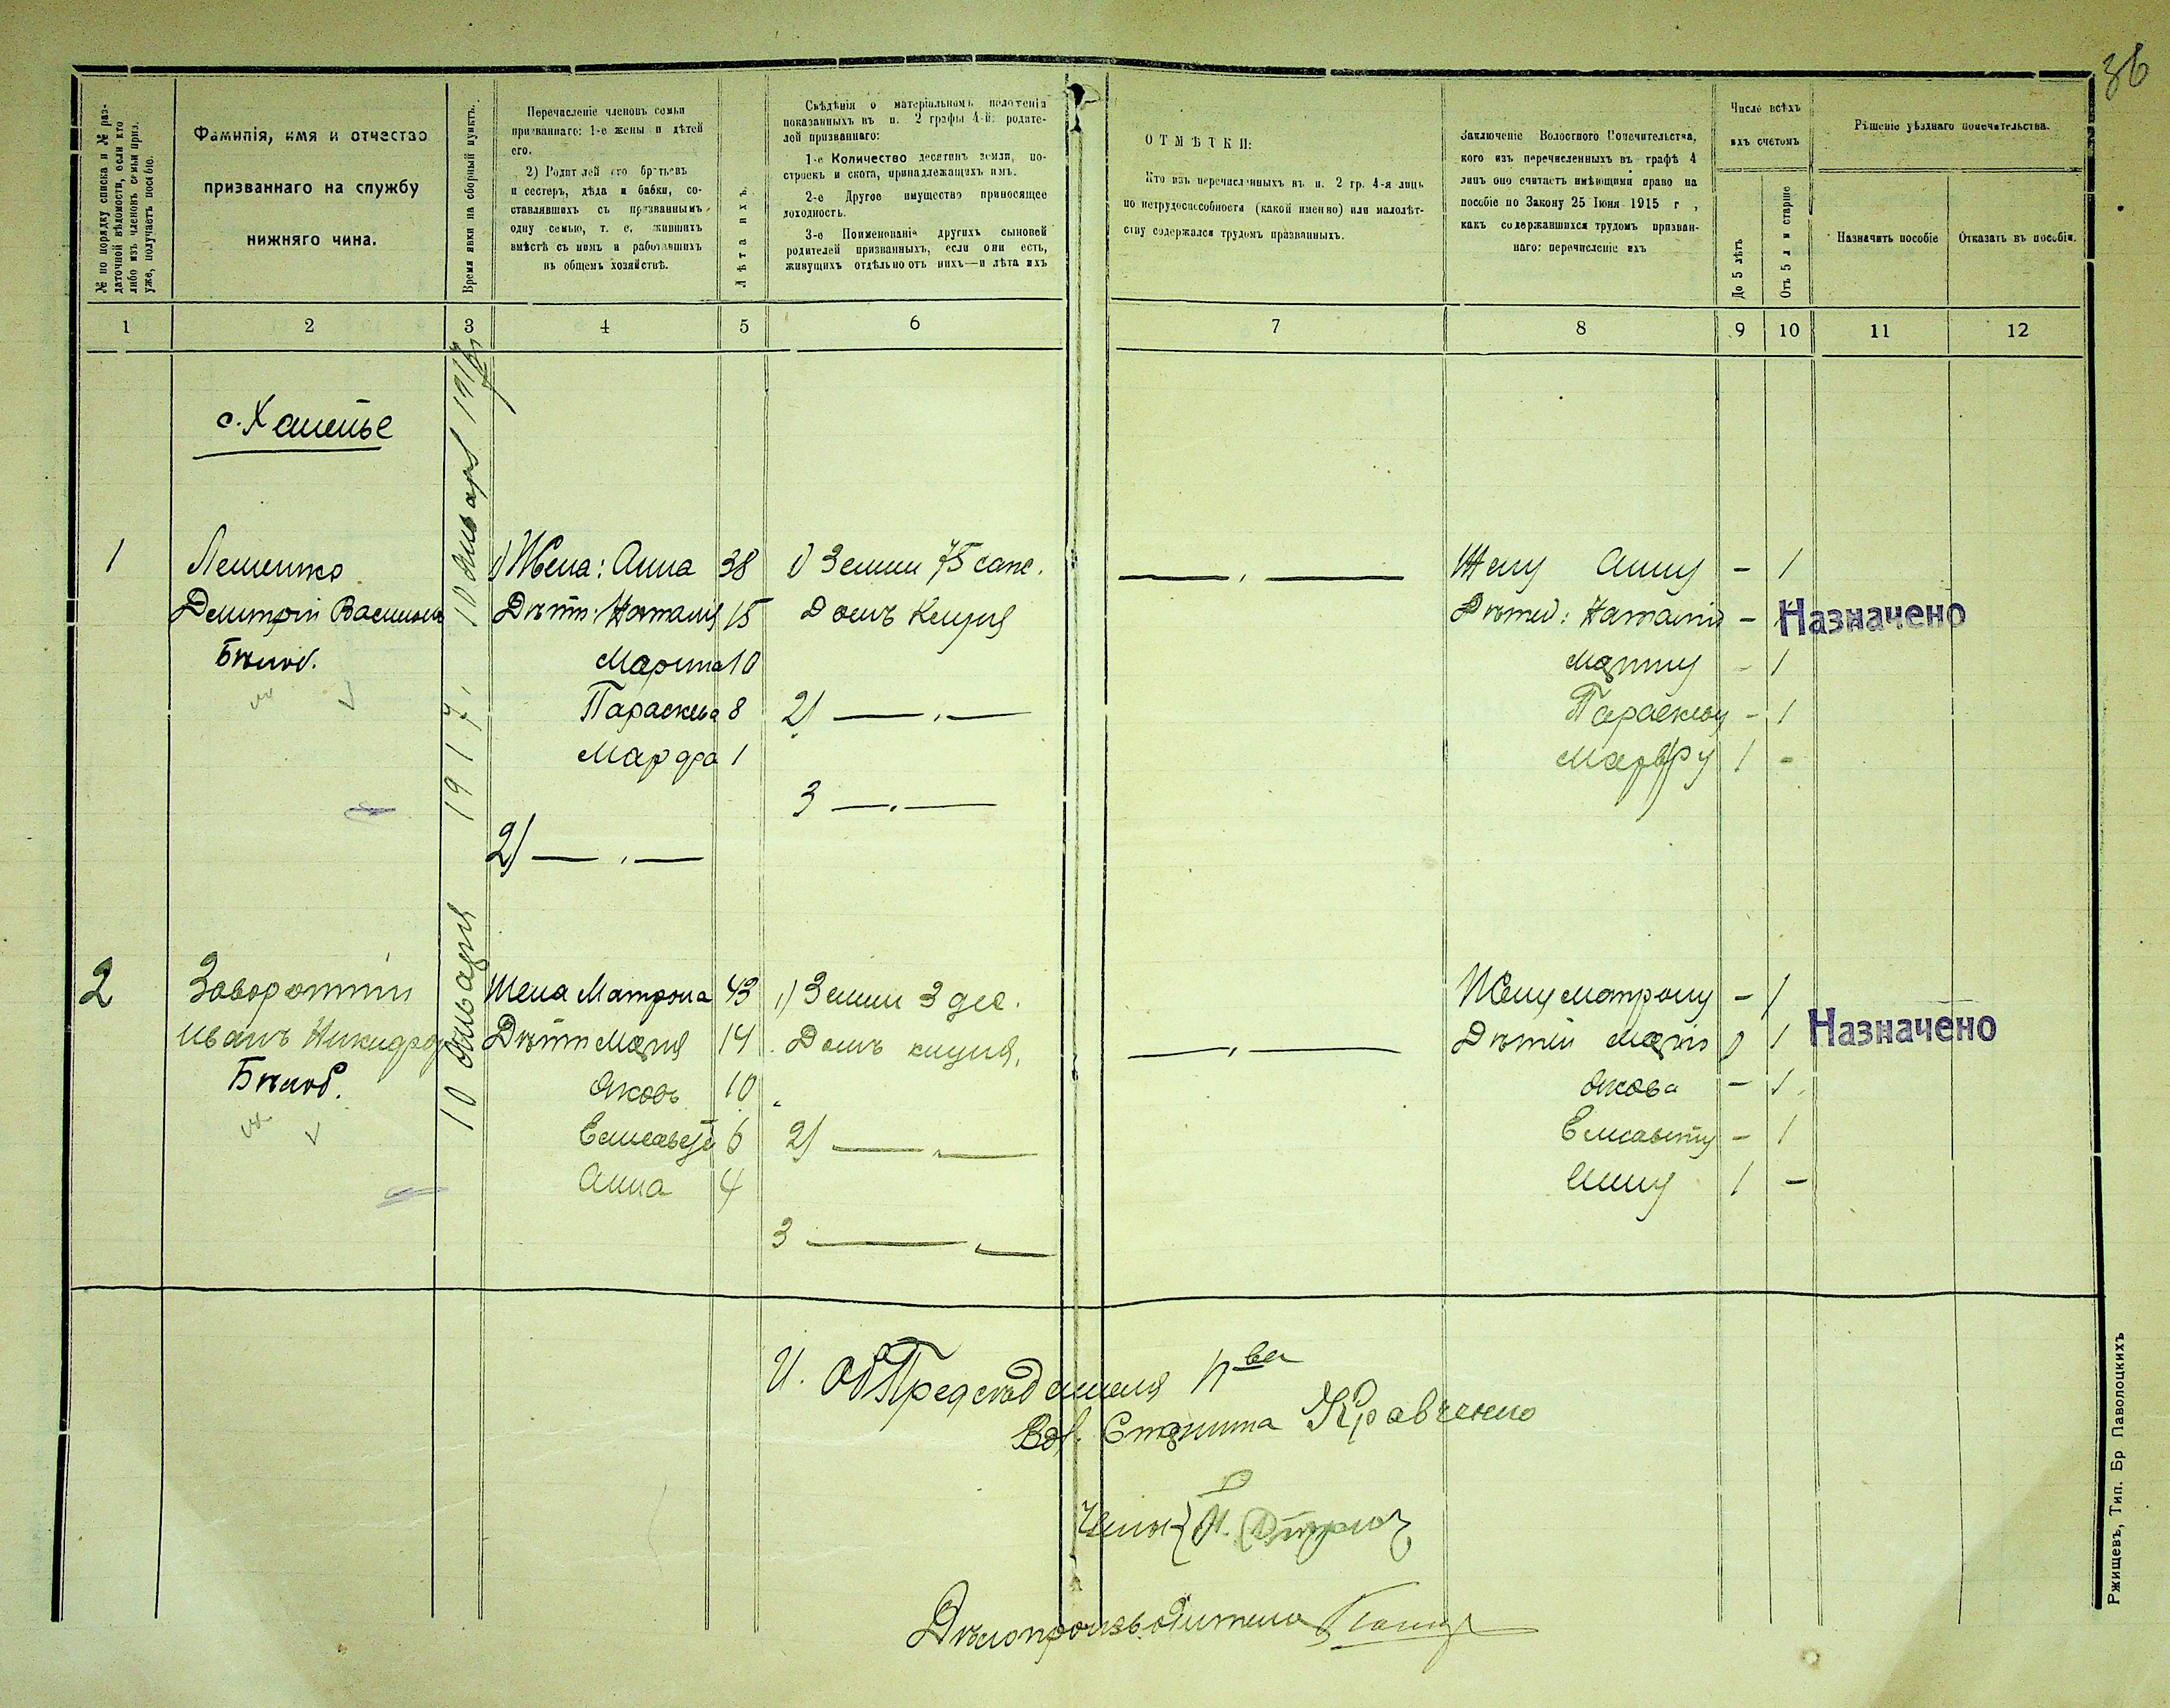 36
№ по порядку списка и № раз-
даточной вѣдомости, если кто
либо изъ членовъ семьи приз.
уже, получаетъ пособіе.
Фамилія, имя и отчество
призваннаго на службу
нижняго чина.
Время явки на сборный пунктъ.
Перечасленіе членовъ семьи
призваннаго: 1-е жены и дѣтей
его.
2) Родителей его братьевъ
и сестеръ, дѣда и бабки, со-
ставлявшихъ съ призваннымъ
одну семью, т. е. жившихъ
вмѣстѣ съ нимъ и работавшихъ
въ общемъ хозяйствѣ.
Лѣта ихъ.
Свѣдѣнія о матеріальномъ положеніи
показанныхъ въ п. 2 графы 4-й: родите-
лей призваннаго:
1-е Количество десятинъ земли, по-
строекъ и скота, принадлежащихъ имъ.
2-е Другое имущество приносящее
доходность.
3-е Поименованіе другихъ сыновей
родителей призванныхъ, если они есть,
живущихъ отдѣльно отъ нихъ—и лѣта ихъ
ОТМѢТКИ:
Кто изъ перечисленныхъ въ п. 2 гр. 4-я лицъ
по нетрудоспособности (какой именно) или малолѣт-
ству содержался трудомъ призванныхъ.
Заключеніе Волостного Попечительства,
кого изъ перечисленныхъ въ графѣ 4
лицъ оно считаетъ имѣющими право на
пособіе по Закону 25 Іюня 1915 г,
какъ содержавшихся трудомъ призван-
наго: перечисленіе ихъ
Число всѣхъ
ихъ счетомъ
До 5 лѣтъ
Отъ 5 л и старше
Рѣшеніе уѣзднаго попечительства.
Назначить пособіе
Отказать въ пособіи.
1 2 3 4 5 6 7 8 9 10 11 12
1
Лешенко
Дмитрій Васильев
Бѣлоб.
10 января 1917
1) Жена: Анна 38
Дѣти: Наталія 15
Марина 10
Параскева 8
Марфа 1
2) — . —
1) Земли 75 саж.
Домъ Клуня
2) — . —
3 — . —
— . —
Жену Анну - 1
Дѣтей: Наталію -
Марину - 1
Параскеву - 1
Марфу 1 -
Назначено
2
Иванъ Никифор
Бѣлоб.
10 января 1917
Жена Матрона 43
Дѣти Марія 14
Яковъ 10
Елисавета 6
Анна 4
1) Земли 3 дес.
Домъ клуня,
2) — . —
3 — . —
— . —
Жену Матрону - 1
Дѣтей Марію 1
Якова - 1
Елисавету - 1
Анну 1 -
Назначено
И. Об Предсѣдателя П-ва
Вол. Старшина Кравченко
Члены
Дѣлопроизводитель
Ржищевъ, Тип. Бр Паволоцкихъ